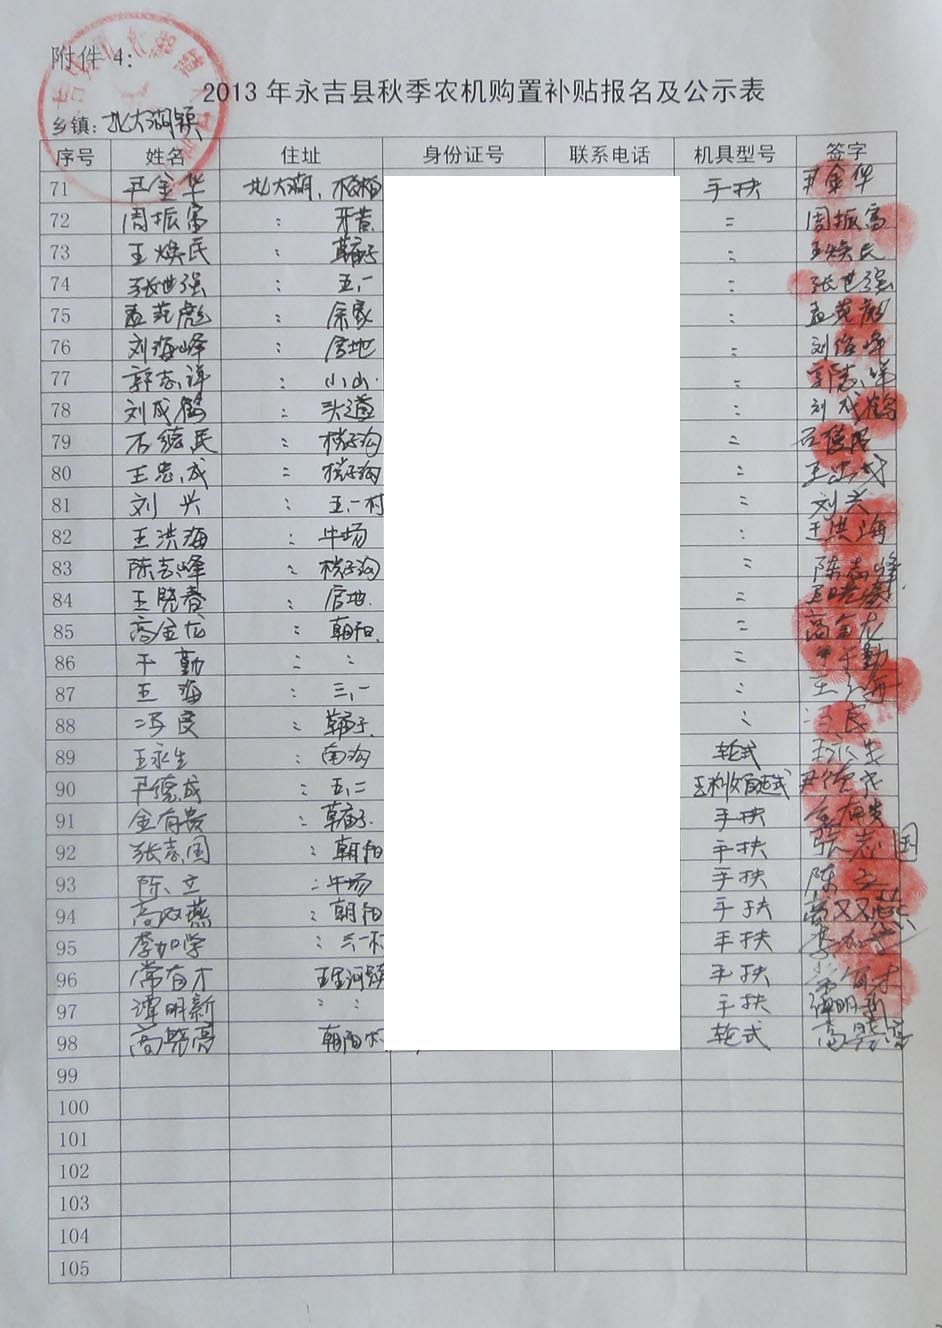 附件 4：
2013 年永吉县秋季农机购置补贴报名及公示表
乡镇：北大湖镇
序号 姓名 住址 身份证号 联系电话 机具型号 签字
71 尹金华 北大湖、 手扶 尹金华
72 周振富 : 牙黄 = 周振富
73 王焕民 : 草庙子 : 王焕民
74 张世强 : 五一 = 张世强
75 孟范彪 : 余家 : 孟范彪
76 刘海峰 : 官地 = 刘海峰
77 郭志祥 : 小山 = 郭志祥
78 刘成鹤 : 头道 : 刘成鹤
79 石德民 : 梯子沟 = 石德民
80 王忠成 = 梯子沟 : 王忠成
81 刘兴 : 五一村 = 刘兴
82 王洪海 : 牛场 : 王洪海
83 陈志峰 : 梯子沟 = 陈志峰
84 王晓春 : 官地 = 王晓春
85 高金龙 : 朝阳 = 高金龙
86 于勤 = : = 于勤
87 王海 : 三一 : 王海
88 冯良 : 草庙子 : 冯良
89 王永生 : 南沟 轮式 王永生
90 尹德成 : 五二 尹德成
91 金有贵 : 草庙子 手扶 金有贵
92 张志国 : 朝阳 手扶 张志国
93 陈立 : 牛场 手扶 陈立
94 高双燕 : 朝阳 手扶 高双燕
95 李加学 : 手扶 李加学
96 常有才 手扶 常有才
97 谭明新 : : 手扶 谭明新
98 高晓亮 朝阳村 轮式 高晓亮
99
100
101
102
103
104
105